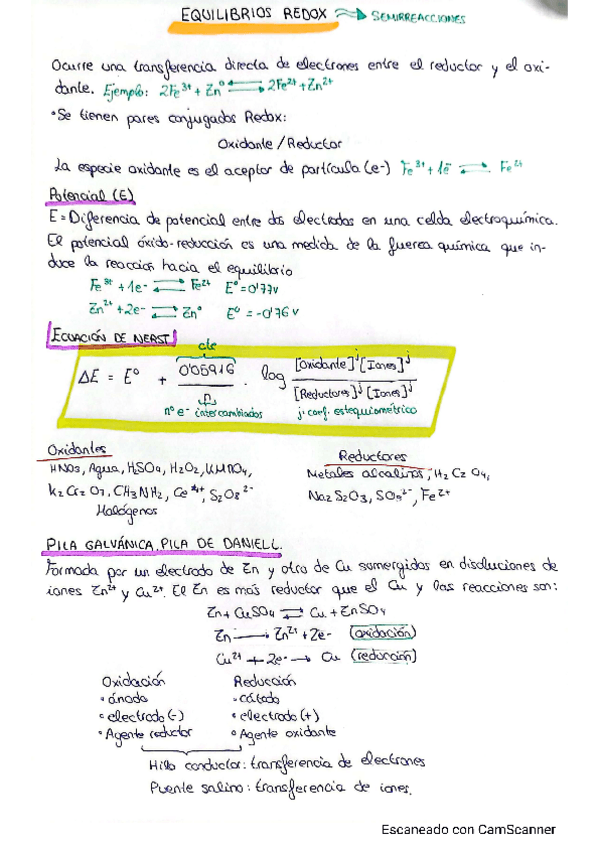 EQUILIBRIOS REDOX → SEMIRREACCIONES
Ocurre una transferencia directa de electrones entre el reductor y el oxi-
dante. Ejemplo: 2Fe³⁺ + Zn⁰ ⇄ 2Fe²⁺ + Zn²⁺
•Se tienen pares conjugados Redox:
Oxidante / Reductor
La especie oxidante es el aceptor de partícula (e-) Fe³⁺ + 1e⁻ ⇄ Fe²⁺
Potencial (E)
E = Diferencia de potencial entre dos electrodos en una celda electroquímica.
El potencial óxido-reducción es una medida de la fuerza química que in-
duce la reacción hacia el equilibrio
Fe³⁺ + 1e- ⇄ Fe²⁺ E⁰ = 0'77v
Zn²⁺ + 2e- ⇄ Zn⁰ E⁰ = -0'76 v
ECUACIÓN DE NERST
cte
ΔE = E⁰ + 0'05916 / n . log [Oxidante]ʲ [Iones]ʲ / [Reductores]ʲ [Iones]ʲ
nº e⁻ intercambiados j: coef. estequiométrico
Oxidantes
HNO₃, Agua, HSO₄, H₂O₂, KMnO₄,
K₂Cr₂O₇, CH₃NH₂, Ce⁴⁺, S₂O₈²⁻
Halógenos
Reductores
Metales alcalinos, H₂C₂O₄,
Na₂S₂O₃, , Fe²⁺
PILA GALVÁNICA. PILA DE DANIELL.
Formada por un electrodo de Zn y otro de Cu sumergidos en disoluciones de
iones Zn²⁺ y Cu²⁺. El Zn es más reductor que el Cu y las reacciones son:
Zn + CuSO₄ ⇄ Cu + ZnSO₄
Zn → Zn²⁺ + 2e- (oxidación)
Cu²⁺ + 2e- → Cu (reducción)
Oxidación Reducción
• ánodo • cátodo
• electrodo (-) • electrodo (+)
• Agente reductor • Agente oxidante
Hilo conductor: transferencia de electrones
Puente salino: transferencia de iones.
Escaneado con CamScanner